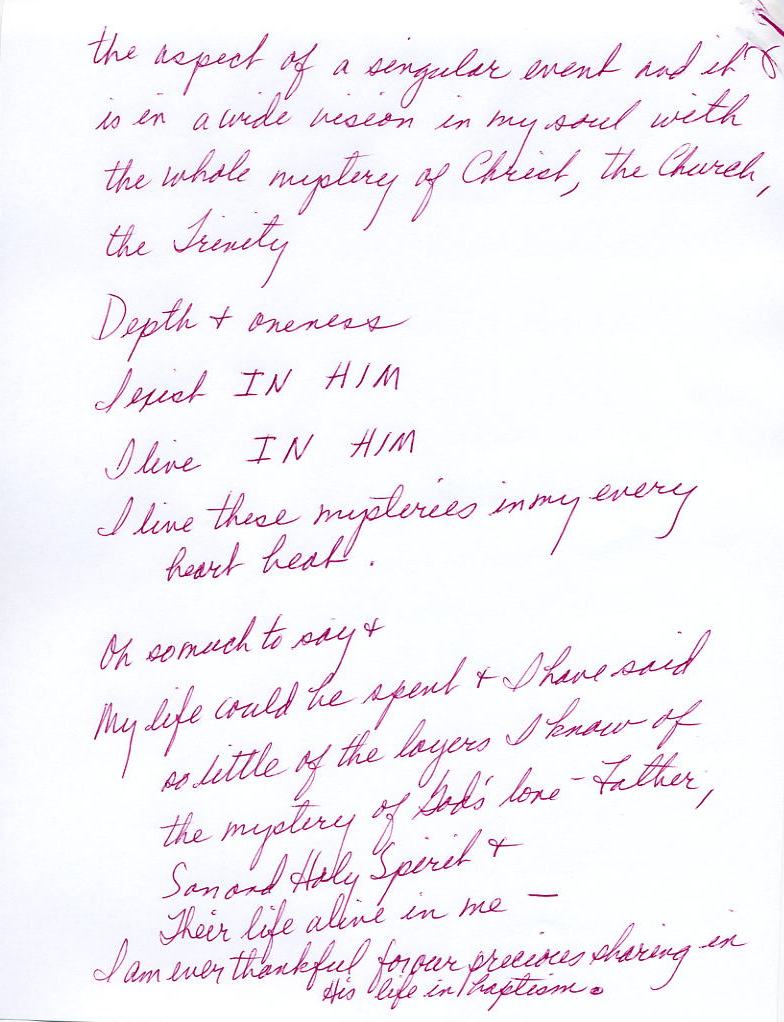 the aspect of a singular event and it
is in a wide vision in my soul with
the whole mystery of Christ, the Church,
the Trinity
Depth + oneness
I exist IN HIM
I live IN HIM
I live these mysteries in my every
heart beat.
Oh so much to say +
My life could be spent + I have said
so little of the layers I know of
the mystery of God's love - Father,
Son and Holy Spirit +
Their life alive in me —
I am ever thankful for our precious sharing in
His life in baptism.